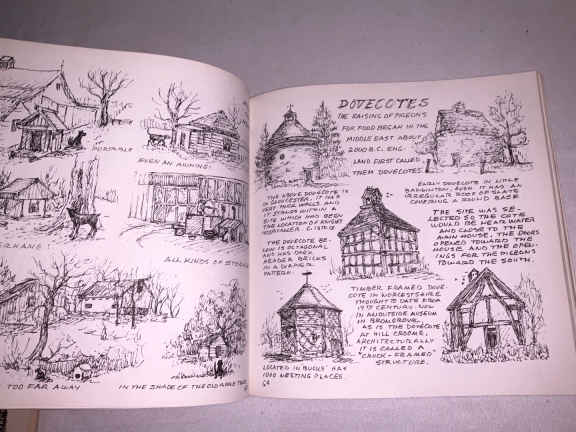 PORTABLE
EVEN AN AWNING!
ERHANG.
ALL KINDS OF STORAGE
TOO FAR AWAY
IN THE SHADE OF THE OLD APPLE TREE
DOVECOTES
THE RAISING OF PIGEONS
FOR FOOD BEGAN IN THE
MIDDLE EAST ABOUT
2000 B.C. ENG-
LAND FIRST CALLED
THEM DOVECOTES.
THE ABOVE DOVECOTE IS
IN GLOUCESTER. IT HAS
4 FT. THICK WALLS AND
IT STANDS WITHIN A
SITE WHICH HAS BEEN
THE LOCATION OF KNIGHT
EARLY DOVECOTE IN LITTLE
BADMINTON, EVEN IT HAS AN
IRREGULAR ROOF OF SLATE
COVERING A ROUND BASE
THE DOVECOTE BE-
LOW IS OCTAGONAL
AND HAS DARK
HEADER BRICKS
IN A DIAPER
PATTERN.
THE SITE WAS SE-
LECTED SO THE COTE
WOULD BE NEAR WATER
AND CLOSE TO THE
MAIN HOUSE, THE DOORS
OPENED TOWARD THE
HOUSE AND THE OPEN-
INGS FOR THE PIGEONS
TOWARD THE SOUTH.
TIMBER FRAMED DOVE-
COTE IN WORCESTSHIRE
THOUGHT TO DATE FROM
17TH CENTURY. NOW
IN AN OUTSIDE MUSEUM
IN BROMGROVE.
AS IS THE DOVECOTE
AT HILL CROOME,
ARCHITECTURALLY
IT IS CALLED A
"CRUCK-FRAMED"
STRUCTURE.
LOCATED IN BUCKS' HAS
1000 NESTING PLACES.
64